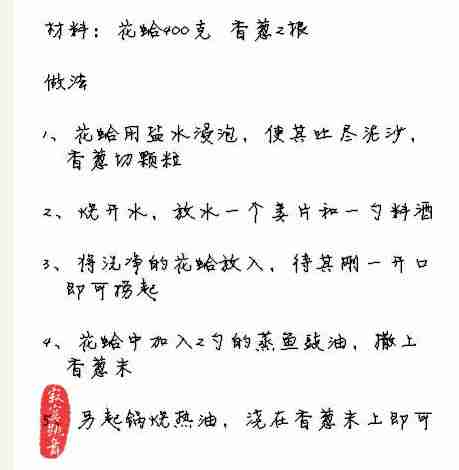 材料：花蛤400克 香葱2根
做法
1、花蛤用盐水浸泡，使其吐尽泥沙，
香葱切颗粒
2、烧开水，放水一个姜片和一勺料酒
3、将洗净的花蛤放入，待其刚一开口
即可捞起
4、花蛤中加入2勺的蒸鱼豉油，撒上
香葱末
5、另起锅烧热油，浇在香葱末上即可
寂寞跳舞